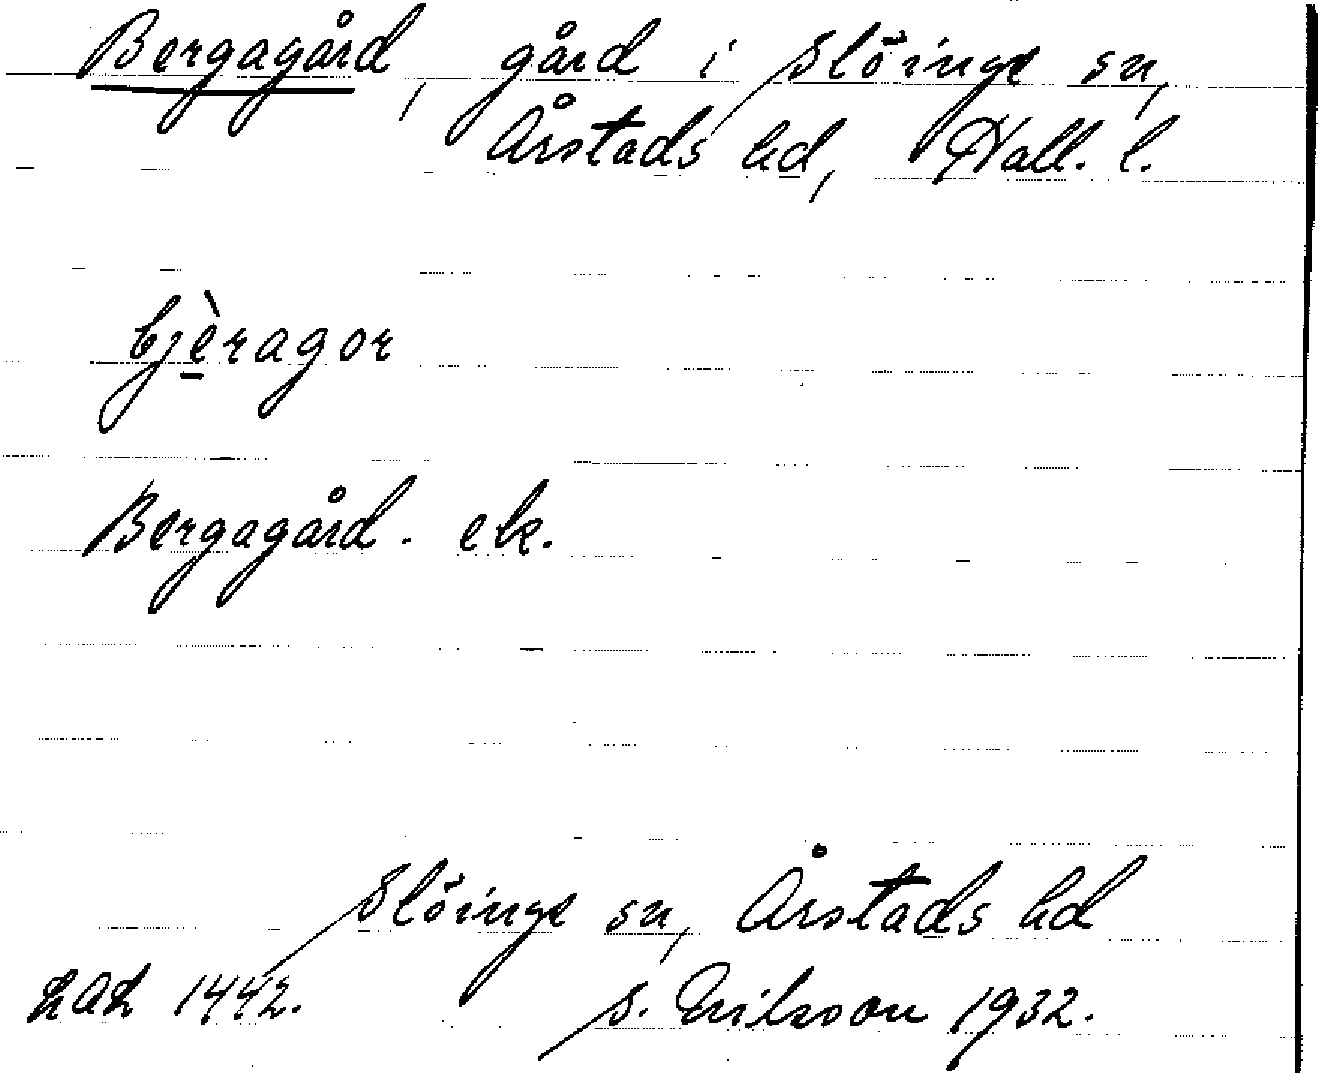 Bergagård, gård i Slöinge sn,
Årstads hd, Hall. l.
bjèragor
Bergagård. ek.
Slöinge sn, Årstads hd
1442. S. Erikson 1932.